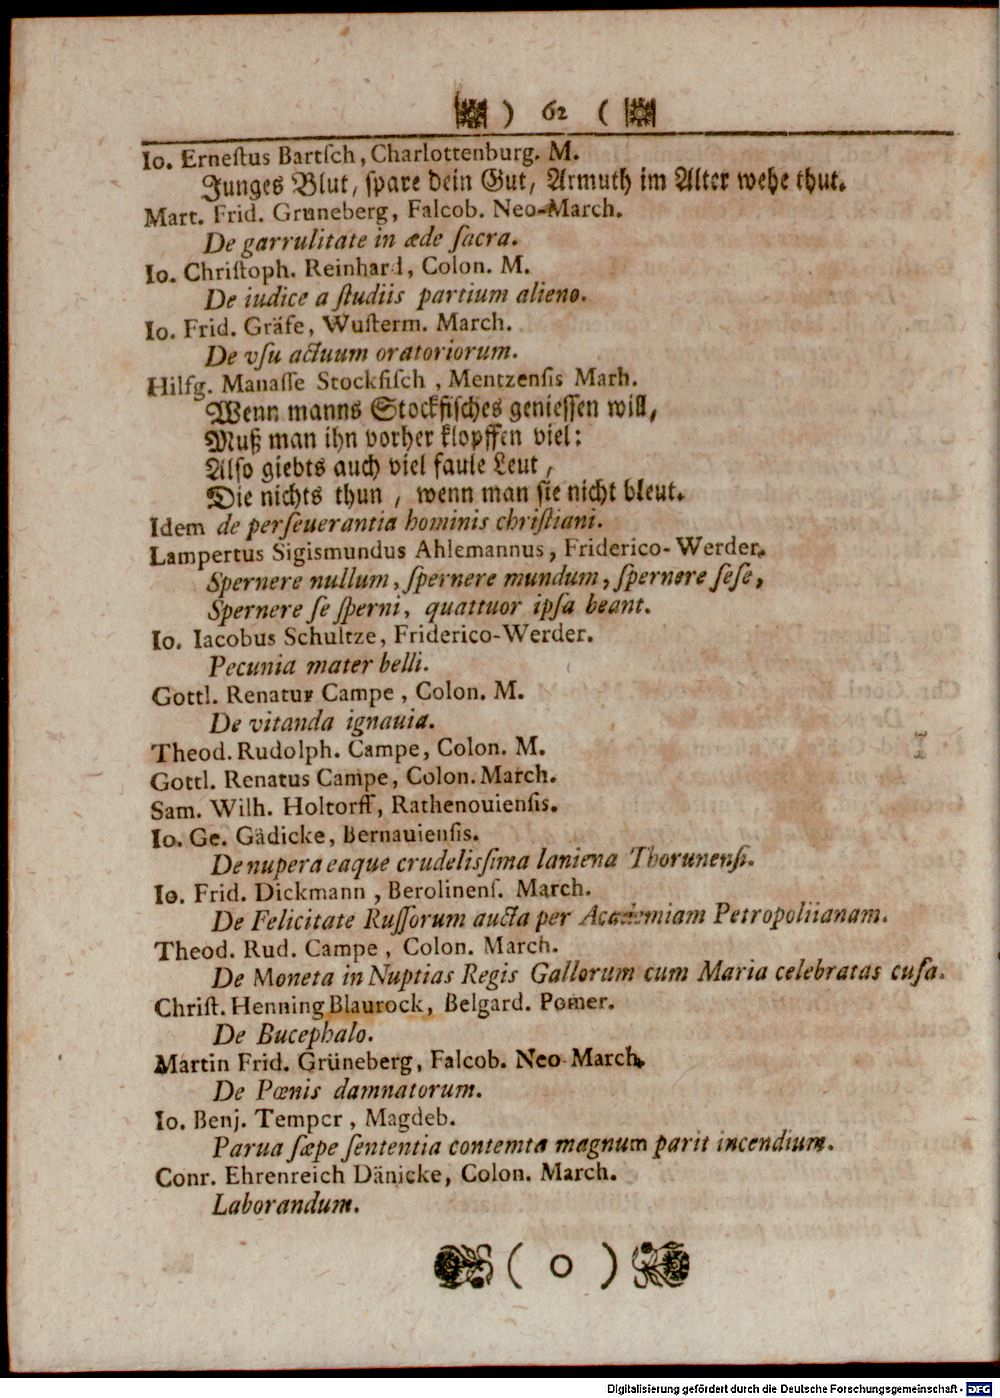 ) 62 (
Io. Ernestus Bartsch, Charlottenburg. M.
Junges Blut, spare dein Gut, Armuth im Alter wehe thut.
Mart. Frid. Gruneberg, Falcob. Neo-March.
De garrulitate in æde sacra.
Io. Christoph. Reinhard, Colon. M.
De iudice a studiis partium alieno.
Io. Frid. Gräfe, Wusterm. March.
De vsu actuum oratoriorum.
Hilfg. Manasse Stockfisch, Mentzensis Marh.
Wenn manns Stockfisches geniessen will,
Muß man ihn vorher klopffen viel:
Also giebts auch viel faule Leut,
Die nichts thun, wenn man sie nicht bleut.
Idem de perseuerantia hominis christiani.
Lampertus Sigismundus Ahlemannus, Friderico-Werder.
Spernere nullum, spernere mundum, spernere sese,
Spernere se sperni, quattuor ipsa beant.
Io. Iacobus Schultze, Friderico-Werder.
Pecunia mater belli.
Gottl. Renatus Campe, Colon. M.
De vitanda ignauia.
Theod. Rudolph. Campe, Colon. M.
Gottl. Renatus Campe, Colon. March.
Sam. Wilh. Holtorff, Rathenouiensis.
Io. Ge. Gädicke, Bernauiensis.
De nupera eaque crudelissima laniena Thorunensi.
Io. Frid. Dickmann, Berolinens. March.
De Felicitate Russorum aucta per Academiam Petropoliianam.
Theod. Rud. Campe, Colon. March.
De Moneta in Nuptias Regis Gallorum cum Maria celebratas cusa.
Christ. Henning Blaurock, Belgard. Pomer.
De Bucephalo.
Martin Frid. Grüneberg, Falcob. Neo-March.
De Pœnis damnatorum.
Io. Benj. Temper, Magdeb.
Parua sæpe sententia contemta magnum parit incendium.
Conr. Ehrenreich Dänicke, Colon. March.
Laborandum.
( o )
Digitalisierung gefördert durch die Deutsche Forschungsgemeinschaft - DFG